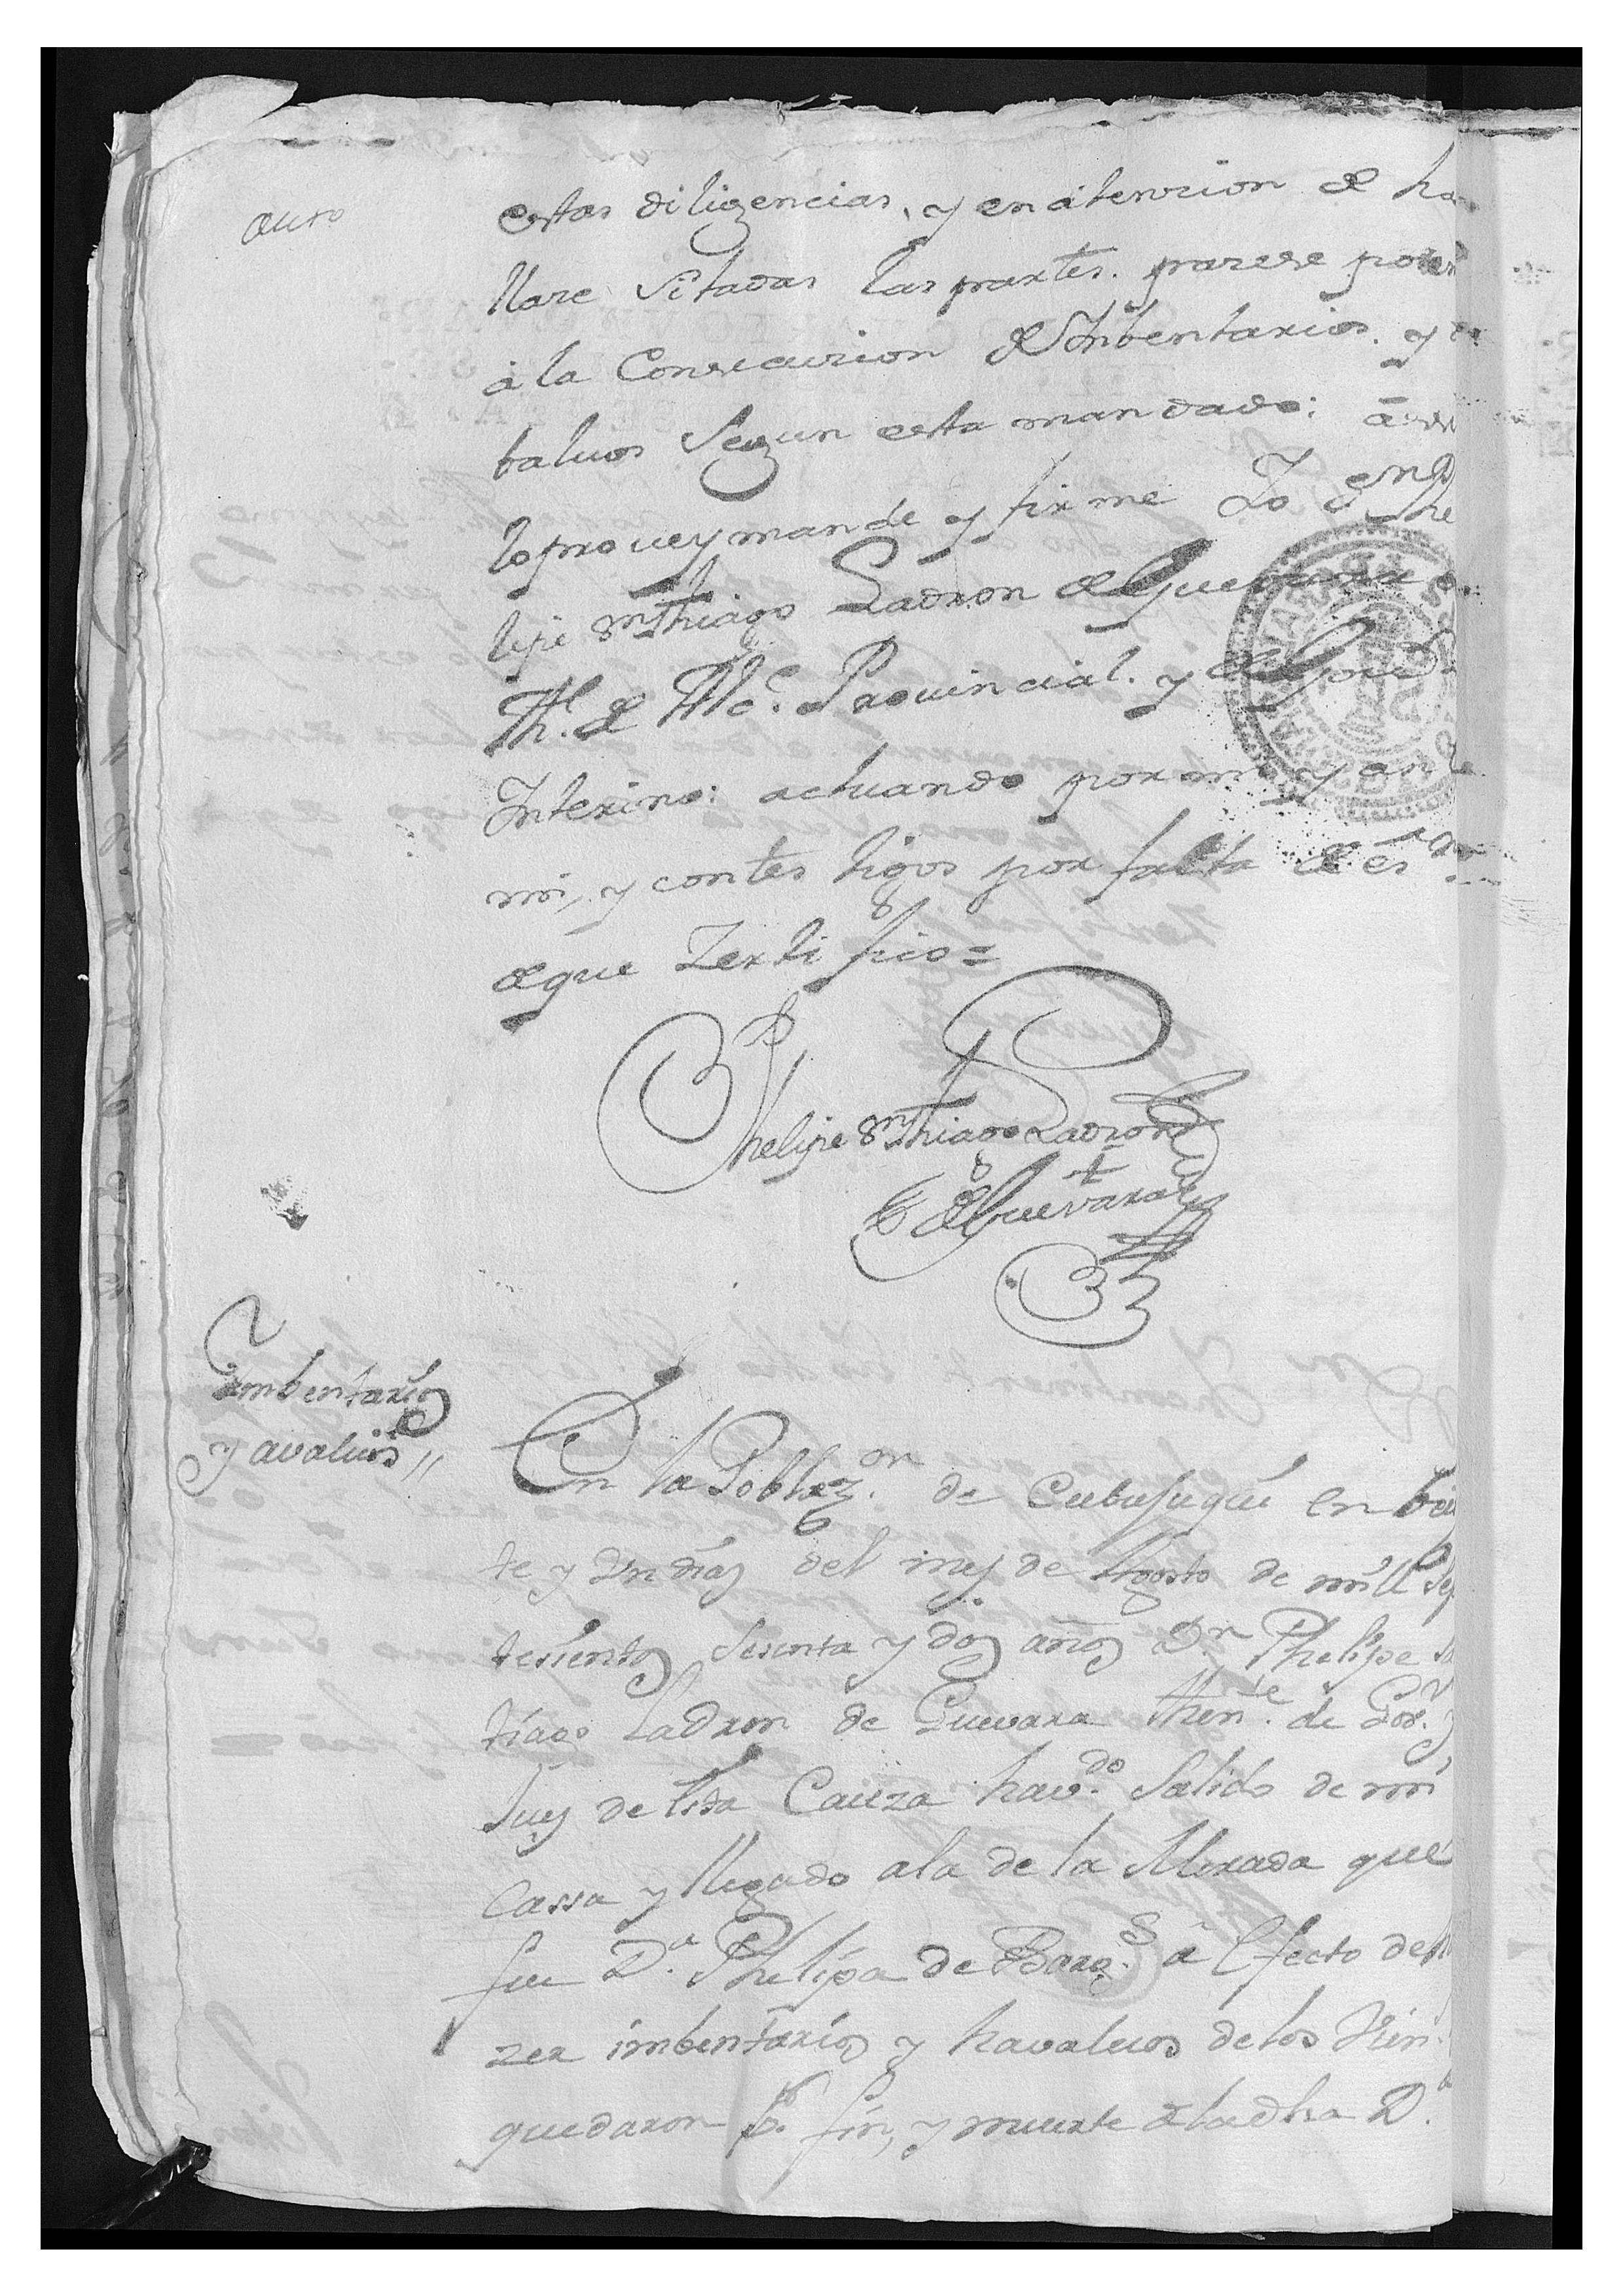 auto
estas diligencias, y en atension de ha
llarse sitadas las partes. parese
á la Consecucion de Inbentarios. y
baluos Segun esta mandado:
lo provey mande y firme Yo Dn Phe
lipe Snthiago Ladron de Guevara
Thte. de Alce. Provincial. y de Govr
Interino: actuando por mi y ante
mi, y con testigos por falta de esno
de que Zertifico=
Phelipe Snthiago Ladron
de Guevara
Imbentarios
y avaluos //
En la Poblazon. de Cubusuquí en bein
te y Un días del mes de Agosto de mill Se
tesientos Sesenta y dos años Dn Phelipe Sn
tiago Ladron de Guevara Thente. de Govr. y
Jues de esta Cauza havdo. Salido de mi
Cassa y llegado a la de la Morada que
fue Da. Phelipa de Baros. á Efecto de ha
zer imbentarios y havaluos de los vien.
quedaron pr. fin, y muerte de la dha Da.